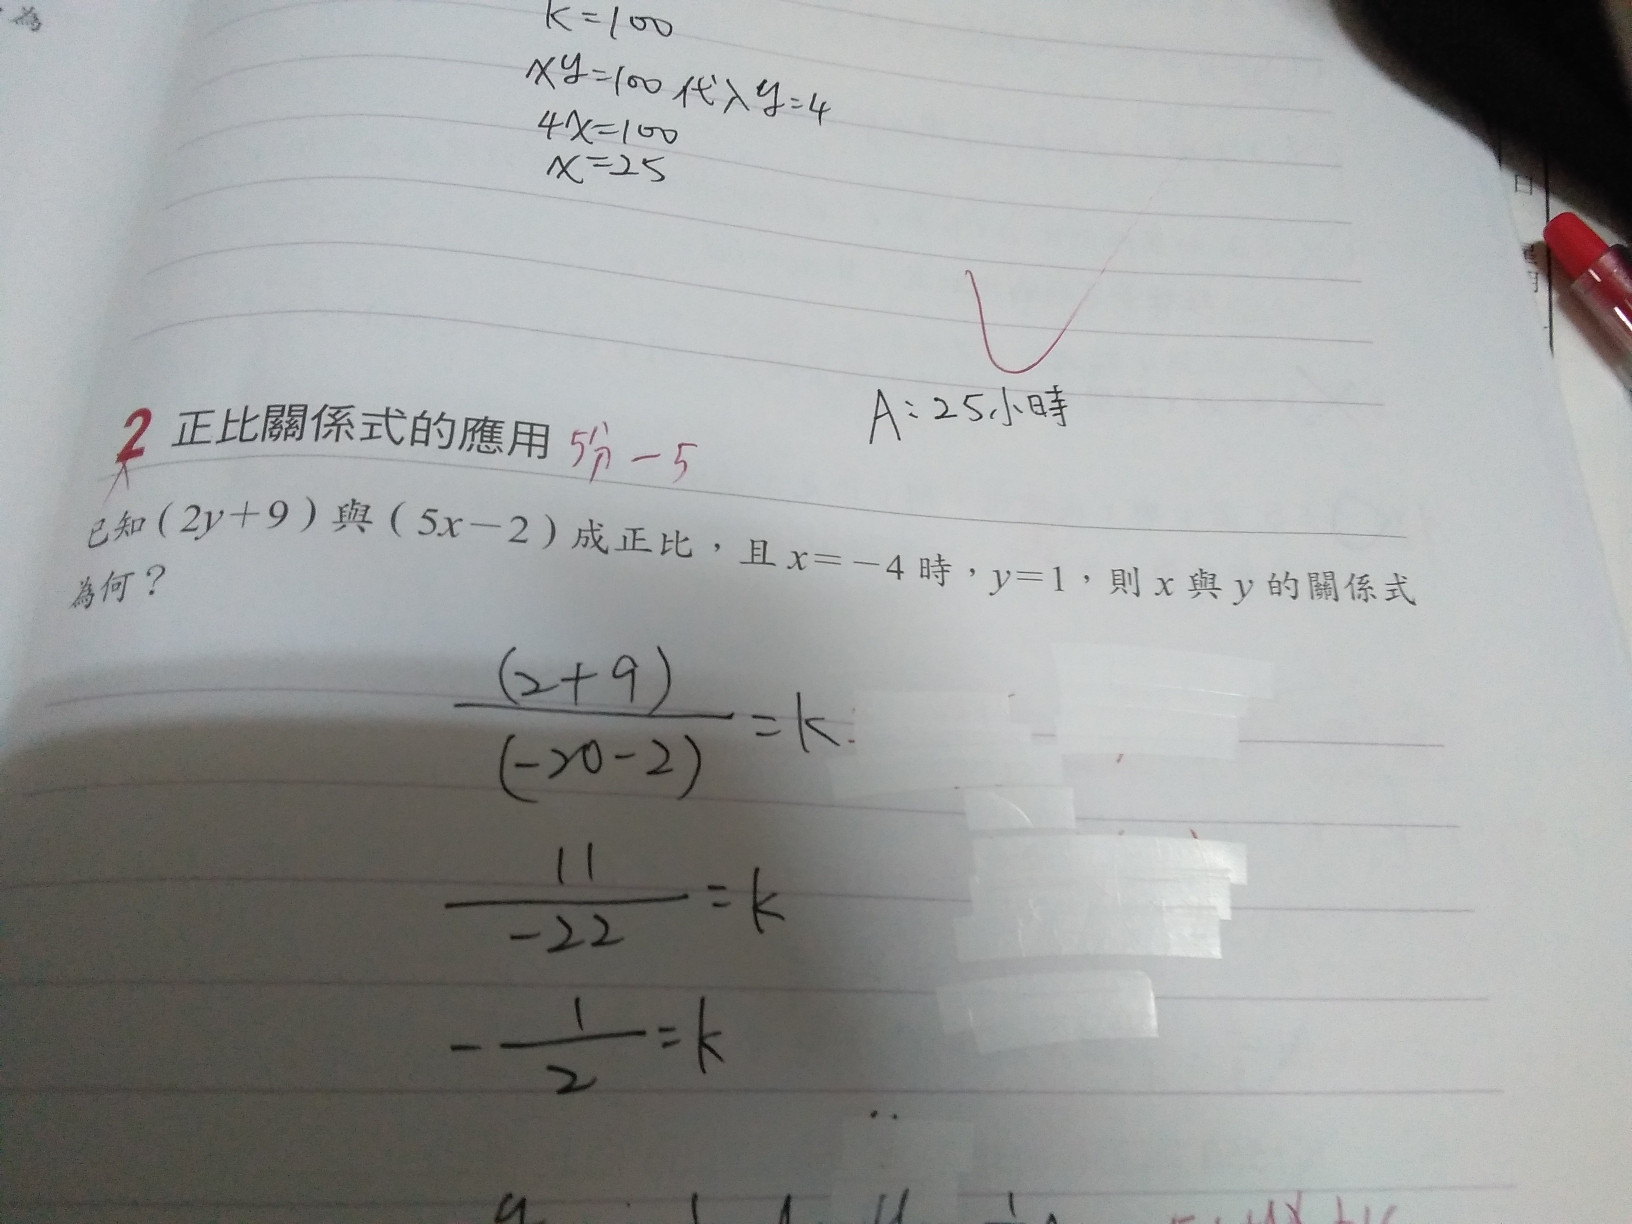 為
k=100
xy=100 代入 y=4
4x=100
x=25
A:25小時
2 正比關係式的應用 5分 -5
已知(2y+9)與(5x-2)成正比，且x=-4時，y=1，則x與y的關係式
為何？
(2+9)/(-20-2)=k
11/-22=k
-1/2=k